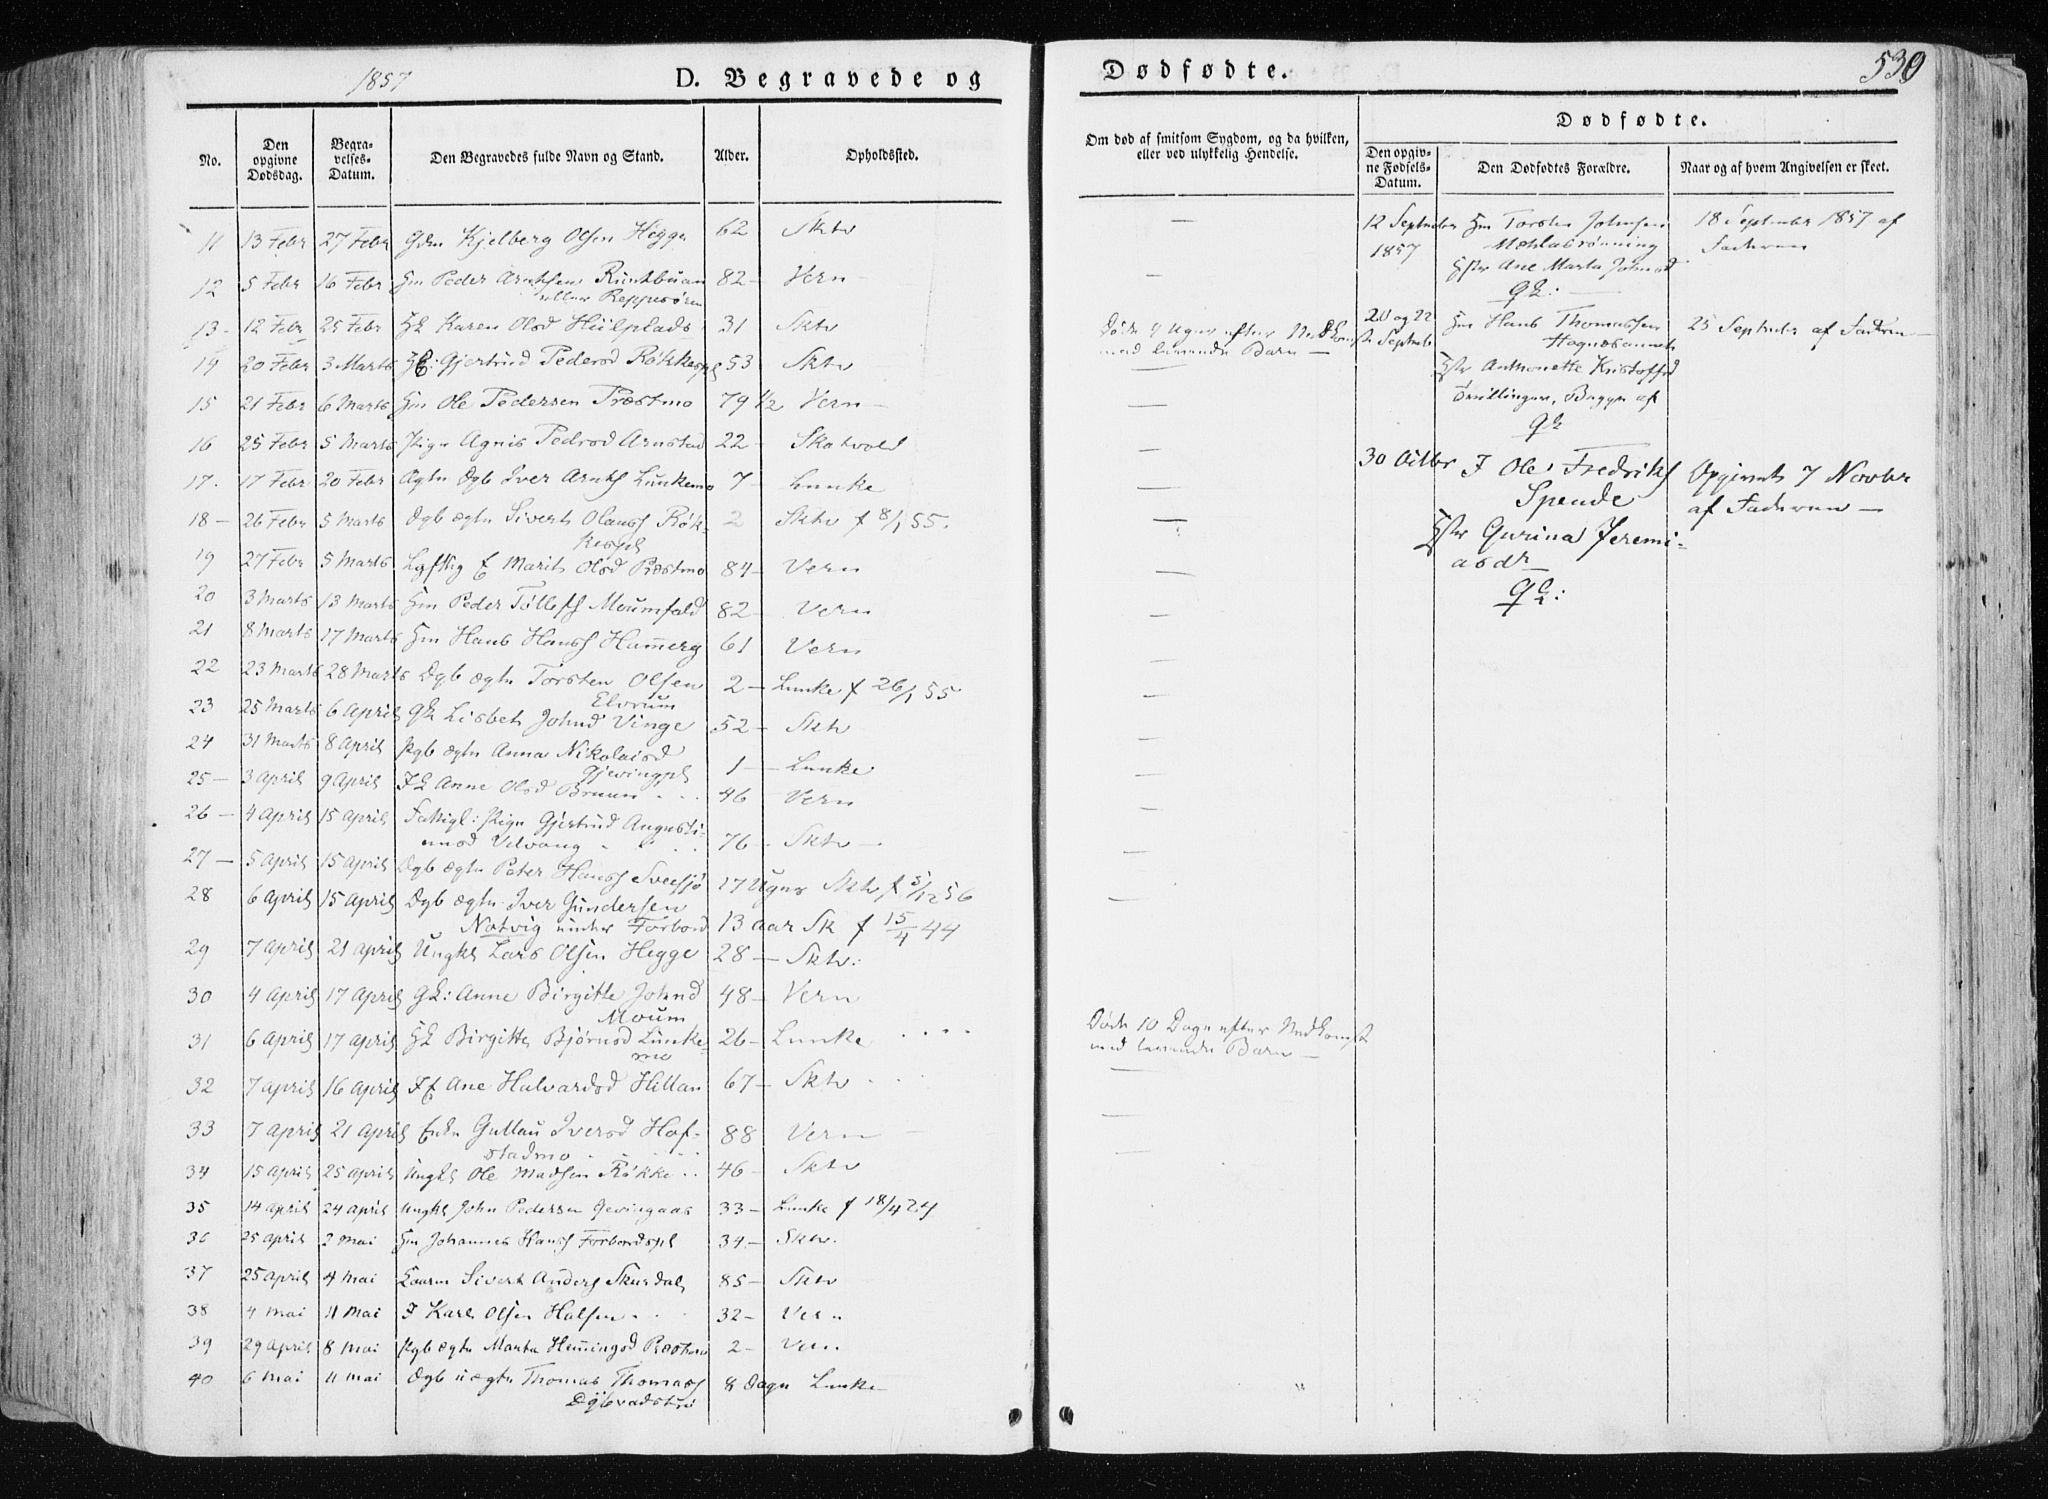 1857
D. Begravede og
Dødfødte.
530
No.
Den opgivne Dødsdag.
Begravelses-Datum.
Den Begravedes fulde Navn og Stand.
Alder.
Opholdssted.
Om død af smitsom Sygdom, og da hvilken, eller ved ulykkelig Hendelse.
Dødfødte.
Den opgivne Fødsels-Datum.
Den Dødfødtes Forældre.
Naar og af hvem Angivelsen er skeet.
11 13 Febr 27 Febr Kjelberg Olsen Hegge 62 Sktv
12 5 Febr 16 Febr Peder Arntsen 82 - Vern
eller Reppesøren
13 - 12 Febr 25 Febr Karen Olsd 31 Sktv
14 20 Febr 3 Marts Gjertrud Pedersd Røkkespl 53 Sktv
15 21 Febr 6 Marts Ole Pedersen Præstmo 79 1/2 Vern -
16 25 Febr 5 Marts Pige Agnis Pedrsd Arnstad 22 - Skatvold
17. 17 Febr 20 Febr Iver Arnts Lunkemo 7 - Lunke
18 - 26 Febr 5 Marts Dgb ægte Sivert Olauss Røk- 2 Sktv f 8/1 55.
kespl
19 27 Febr 5 Marts Marit Olsd Præstmo 84 - Vern
20 3 Marts 13 Marts Peder Tollefs Moumfald 82 - Vern
21 8 Marts 17 Marts Hans Hanss Hammerg 61 Vern
22 23 Marts 28 Marts Dgb ægte Torsten Olsen 2 - Lunke f 26/1 55
Elvrum
23 25 Marts 6 April Lisbet Johnd Vinge 52 - Sktv
24 31 Marts 8 April Pgb ægte Anna Nikolaisd
Gjevingpl 1 - Lunke
25 - 3 April 9 April Anne Olsd Bruun 46 Vern
26 - 4 April 15 April Pige Gjertrud Augusti-
nusd Velvang 76 - Sktv -
27 - 5 April 15 April Dgb ægte Peter Hanss Sveesjø 17 Uger Sktv f 5/12 56
28 6 April 15 April Dgb ægte Iver Gundersen
Natvig under Forbord 13 aar Sk f 15/4 44
29 7 April 21 April Ungkl Lars Olsen Hegge 28 - Sktv:
30 4 April 17 April Anne Birgitte Johnd 48 - Vern
Moum
31 6 April 17 April Birgitte Bjørnsd Lunke- 26 - Lunke
mo
32 7 April 16 April Ane Halvardsd Hillan 67 - Sktv
33 7 April 21 April Enke Gullau Iversd Hof- 88 Vern
stadmo
34 15 April 25 April Ungkl Ole Madsen Røkke 46 - Sktv
35 14 April 24 April Ungkl John Pedersen Gevingaas 33 - Lunke f 18/4 24
36 25 April 2 Mai Johannes Hanss Forbordspl 34 - Sktv.
37 25 April 4 Mai Sivert Anders Skurdal 85 - Sktv
38 4 Mai 11 Mai Karl Olsen Halsen 32 - Vern
39 29 April 8 Mai Pgb ægte Marta Hemingsd Præstmo 2 - Vern
40 6 Mai 11 Mai Dgb uægte Thomas Thomass 8 Dage Lunke
Dybvadstrø
Døde 4 Uger efter Nedkomst
med levende Barn -
Døde 10 Dage efter Nedkomst
med levende Barn -
12 September 1857
Torsten Johnsen
Mæhlasrønning
Ane Marta Johnsd
18 September 1857 af
Faderen
20 og 22
September
Hans Thomassen
Anthonette Kristoffsd
Tvillinger, Begge af
25 September af Faderen -
30 Octbr
Ole Fredriks
Spende
Gurina Jeremi-
asdr
Opgivet 7 Novbr
af Faderen -